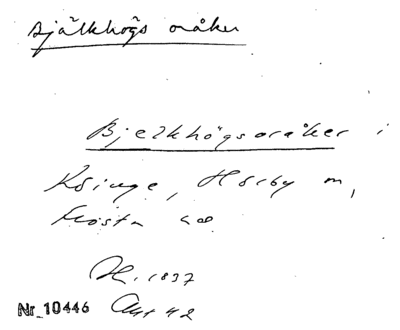 Bjälkhögs oråker
Bjelkhögsoråker i
Ksinge, Hörby m,
Frosta hd
H. 1837
Nr 10446 Akt 42